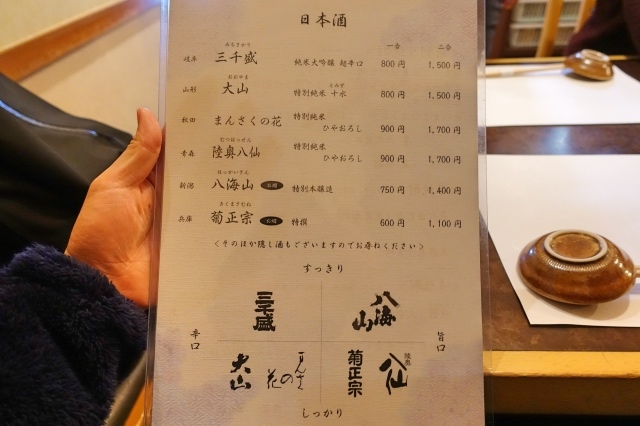 日本酒
一合 二合
みちさかり
岐阜 三千盛 純米大吟醸 超辛口 800円 1,500円
おおやま とみず
山形 大山 特別純米 十水 800円 1,500円
秋田 まんさくの花 特別純米 ひやおろし 900円 1,700円
むつはっせん
青森 陸奥八仙 特別純米 ひやおろし 900円 1,700円
はっかいさん
新潟 八海山 特別本醸造 750円 1,400円
きくまさむね
兵庫 菊正宗 特撰 600円 1,100円
<そのほか隠し酒もございますのでお尋ねください>
すっきり
三千盛 八海山
辛口 旨口
大山 まんさくの花 菊正宗 陸奥八仙
しっかり